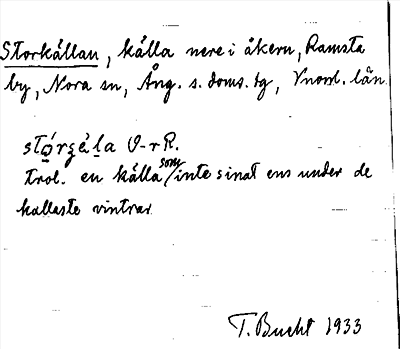 Storkällan, källa nere i åkern, Ramsta
by, Nora sn, Ång. s. doms. tg, Vnorl. län.
stọ́rʒéḷa O-rR.
Trol. en källa som inte sinat ens under de
kallaste vintrar
T. Bucht 1933